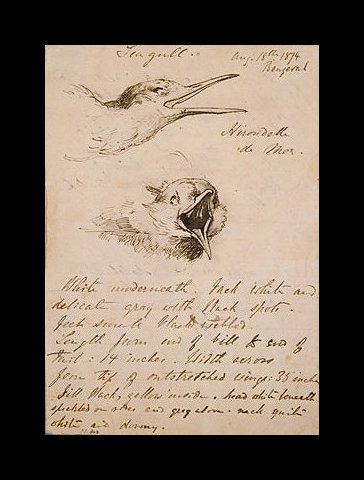 Seagull.
Aug. 18th 1874
Benzeval
Hirondelle
de Mer.
White underneath. Back white and
delicate gray with black spots.
feet small black webbed.
Length from end of bill to end of
tail: 14 inches. Width across
from tip of outstretched wings: 35 inches
Bill black, yellow inside. head white beneath
speckled on sides and gray above. neck quite
white and downy.